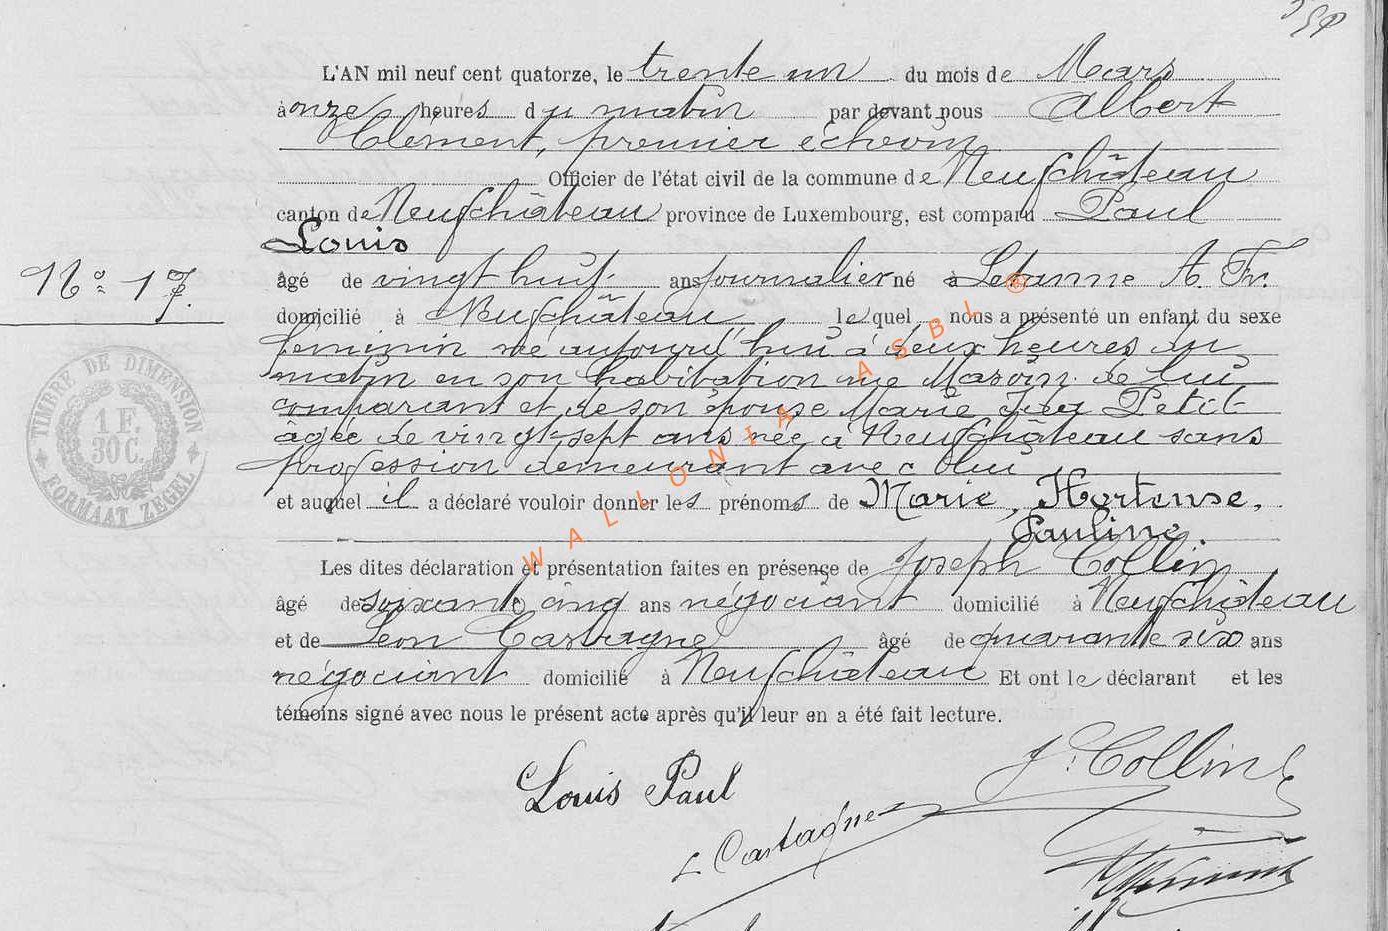 L'AN mil neuf cent quatorze, le trente un du mois de Mars
à onze heures du matin par devant nous Albert
Clement, premier échevin
Officier de l'état civil de la commune de Neufchâteau
canton de Neufchâteau province de Luxembourg, est comparu Paul
Louis
N° 17.
âgé de vingt huit ans journalier né à Letanne A Fr.
domicilié à Neufchâteau lequel nous a présenté un enfant du sexe
feminin né aujourd'hui à deux heures du
matin en son habitation rue de lui
comparant et de son épouse Marie Petit
âgée de vingt-sept ans née à Neufchâteau sans
profession demeurant avec lui
et auquel il a déclaré vouloir donner les prénoms de Marie, Hortense,
Pauline.
Les dites déclaration et présentation faites en présence de Joseph Collin
âgé de soixante cinq ans négociant domicilié à Neufchâteau
et de Léon Castagne âgé de quarante six ans
négociant domicilié à Neufchâteau Et ont le déclarant et les
témoins signé avec nous le présent acte après qu'il leur en a été fait lecture.
Louis Paul
J. Collin
L Castagne
TIMBRE DE DIMENSION
1 F.
30 C.
FORMAAT ZEGEL
WALLONIA ASBL ®